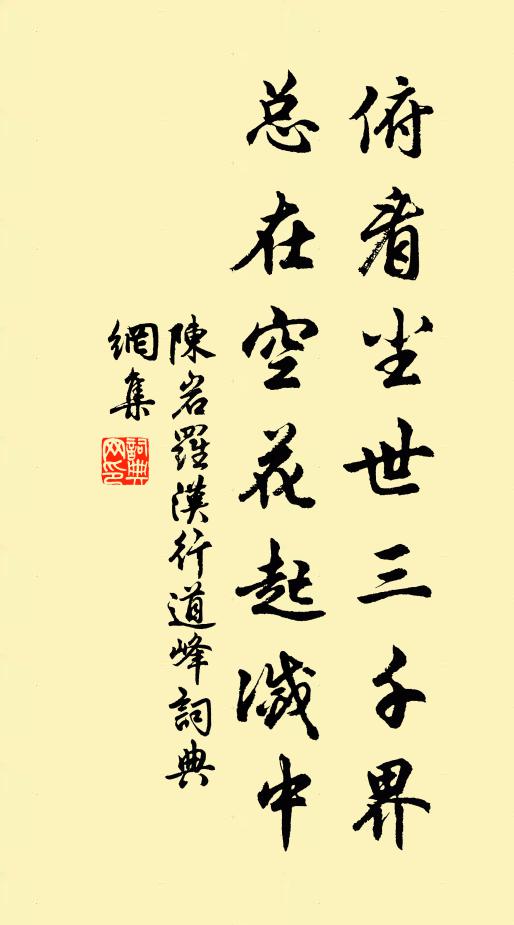 俯看尘世三千界
总在空花起滅中
陳岩羅漢行道峰詞典
網集
詞典
网印